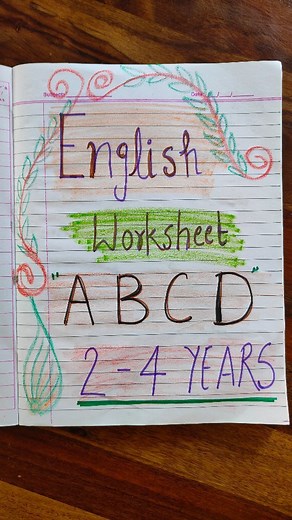 English
Worksheet
"A B C D"
2-4 YEARS